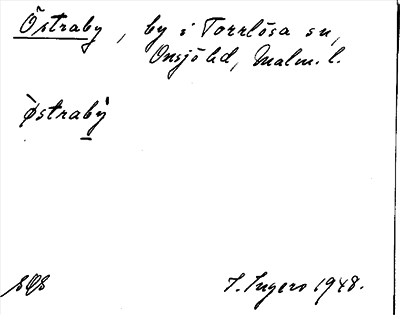 Östraby, by i Torrlösa sn,
Onsjö hd, Malm. l.
Östraby
SOS
I. Ingers 1948.